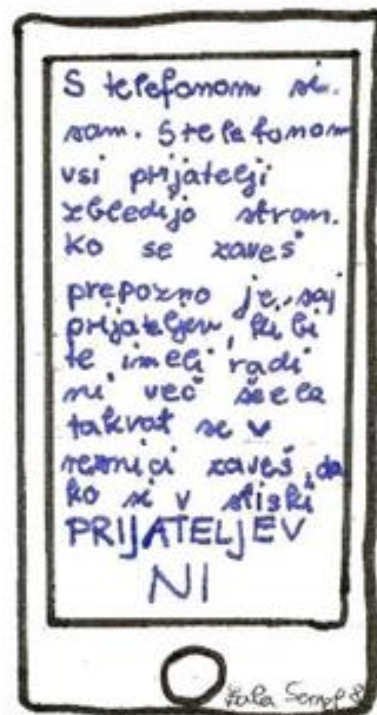 S telefonom si
sam. S telefonom
vsi prijatelji
zbledijo stran.
Ko se zaveš
prepozno je, saj
prijateljev, ki bi
te imeli radi
ni več šele
takrat se v
resnici zaveš, da
ko si v stiski
PRIJATELJEV
NI
Lala